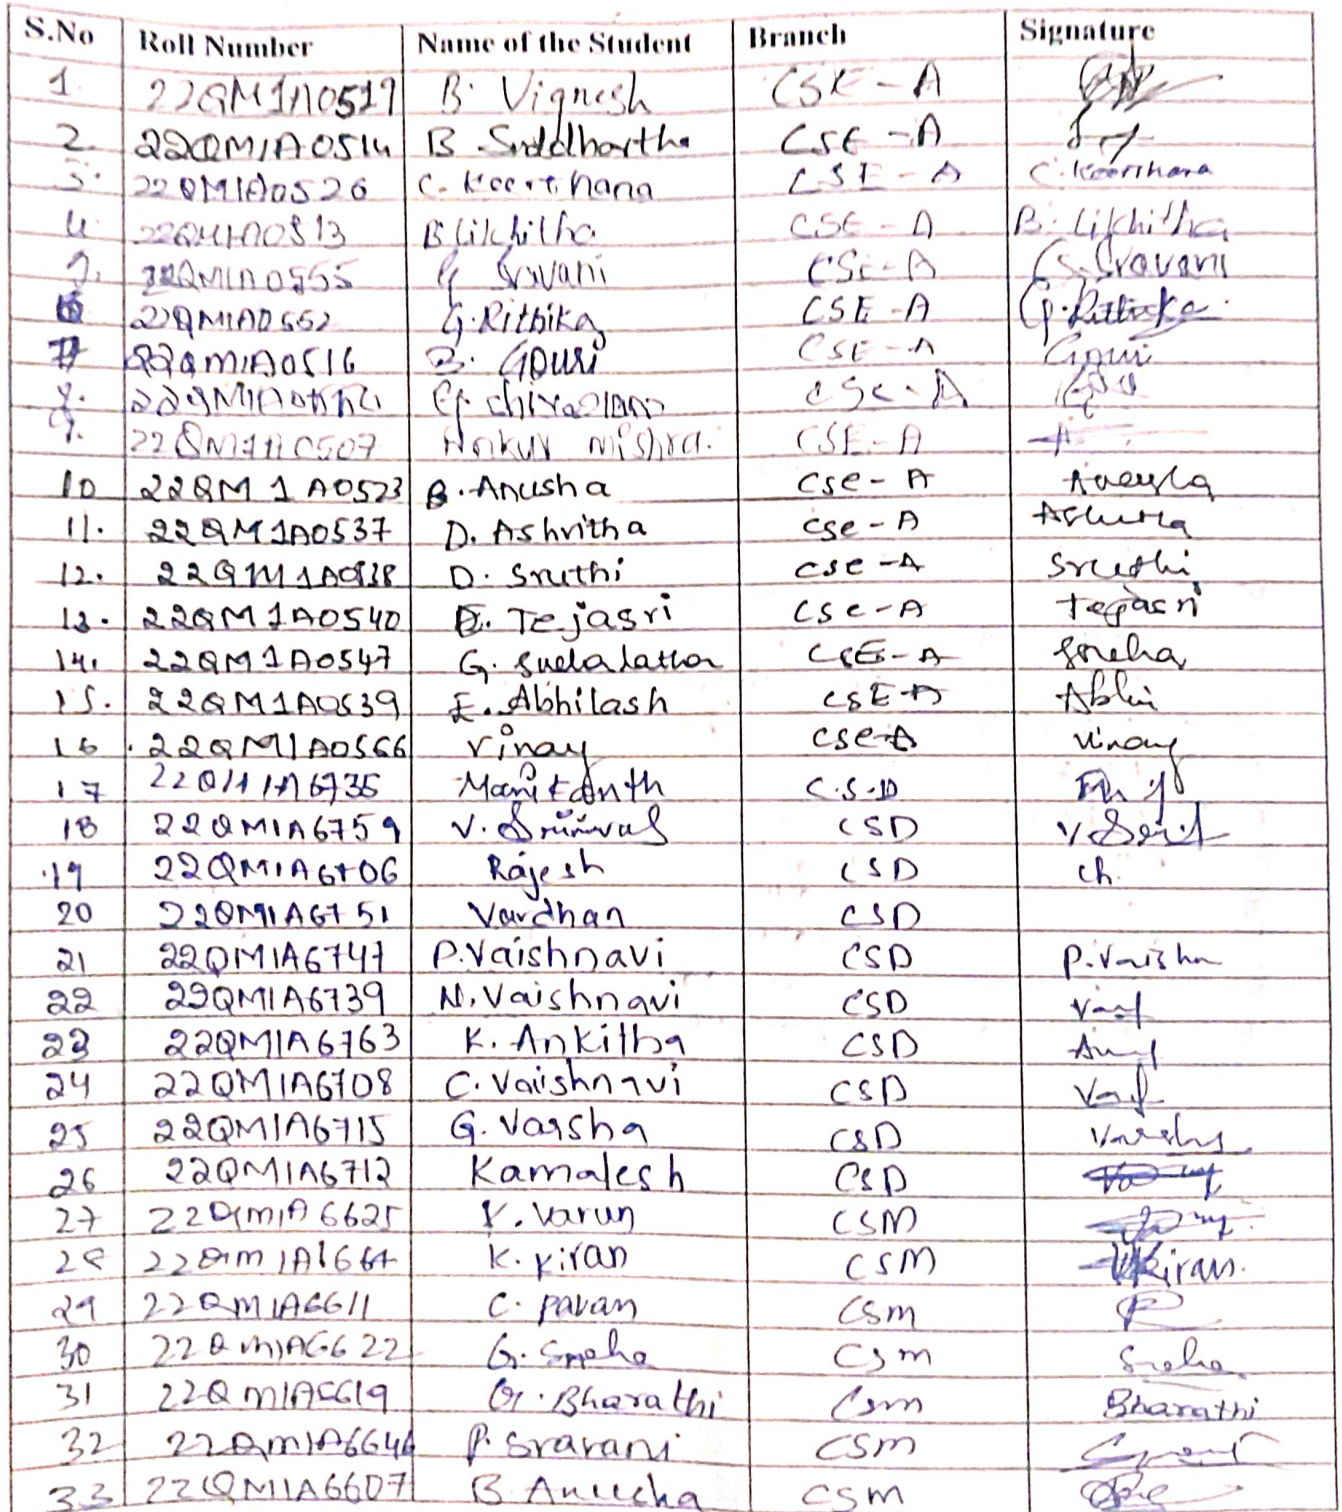 S.No Roll Number Name of the Student Branch Signature
1. 22QM1A0519 B. Vignesh CSE - A
2. 22QM1A0514 B. Siddhartha CSE - A
3. 22QM1A0526 C. Keerthana CSE - A C. Keerthana
4. 22QM1A0513 B Likhitha CSE - A B. Likhitha
22QM1A0555 G Sravani CSE - A G. Sravani
6 22QM1A0552 G. Rithika CSE - A G. Rithika
7 22QM1A0516 B. Gouri CSE - A Gouri
CSE - A
9. 22QM1A0507 Ankur Mishra. CSE - A A
10 22QM1A0523 B. Anusha CSE - A Anusha
11. 22QM1A0537 D. Ashritha CSE - A Ashritha
12. 22QM1A0538 D. Sruthi CSE - A Sruthi
13. 22QM1A0540 E. Tejasri CSE - A Tejasri
14. 22QM1A0547 G. CSE - A Sneha
15. 22QM1A0539 E. Abhilash CSE - A Abhi
16 22QM1A0566 Vinay CSE - A Vinay
17 22QM1A6735 Manikanth C.S.D
18 22QM1A6759 V. Srinivas CSD
19 22QM1A6706 Rajesh CSD ch.
20 22QM1A6751 Vardhan CSD
21 22QM1A6747 P. Vaishnavi CSD P. Vaishn
22 22QM1A6739 N. Vaishnavi CSD
23 22QM1A6763 K. Ankitha CSD
24 22QM1A6708 C. Vaishnavi CSD
25 22QM1A6715 G. Varsha CSD Varsha
26 22QM1A6712 Kamalesh CSD
27 22QM1A6625 K. Varun CSM
28 K. Kiran CSM Kiran.
29 22QM1A6611 C. Pavan CSM
30 22QM1A6622 G. Sneha CSM Sneha
31 22QM1A6619 G. Bharathi CSM Bharathi
32 22QM1A6646 P. Sravani CSM
33 22QM1A6607 B Anusha CSM